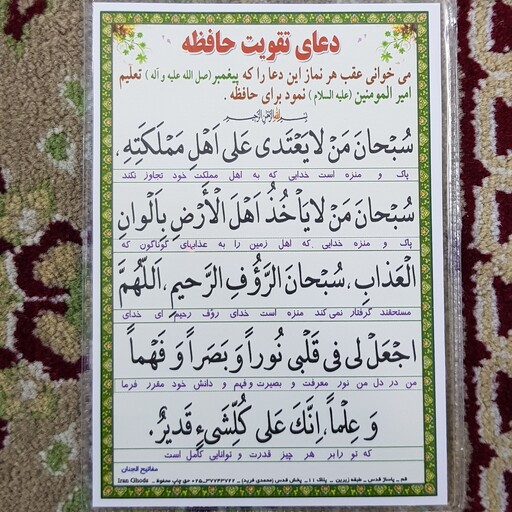 دعای تقویت حافظه
می خوانی عقب هر نماز این دعا را که پیغمبر (صل الله علیه و آله) تعلیم
امیر المومنین (علیه السلام) نمود برای حافظه.
بسم الله الرحمن الرحیم
سُبْحانَ مَنْ لا یَعْتَدی عَلی اَهْلِ مَمْلَکَتِهِ،
پاک و منزه است خدایی که به اهل مملکت خود تجاوز نکند
سُبْحانَ مَنْ لا یَاْخُذُ اَهْلَ الْاَرْضِ بِاَلْوانِ
پاک و منزه خدایی که اهل زمین را به عذابهای گوناگون که
الْعَذابِ، سُبْحانَ الرَّؤُفِ الرَّحیمِ، اَللّهُمَّ
مستحقند گرفتار نمی کند منزه است خدای رؤف رحیم ای خدای
اجْعَلْ لی فی قَلْبی نُوراً وَ بَصَراً وَ فَهْماً
من در دل من نور معرفت و بصیرت و فهم و دانش خود مقرر فرما
وَ عِلْماً، اِنَّکَ عَلی کُلِّشَیءٍ قَدیرٌ.
که تو را بر هر چیز قدرت و توانایی کامل است
مفاتیح الجنان
قم - پاساژ قدس - طبقه زیرین - پلاک ۱۱ - پخش قدس (محمدی فرید) - ۳۷۷۴۳۷۶۲-۰۲۵ حق چاپ محفوظ - Iran Ghods